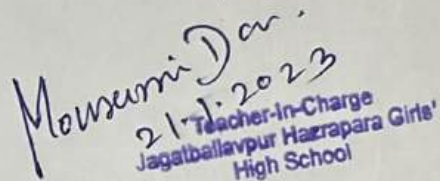 Mousumi Das.
21.1.2023
Teacher-In-Charge
Jagatballavpur Hazrapara Girls'
High School